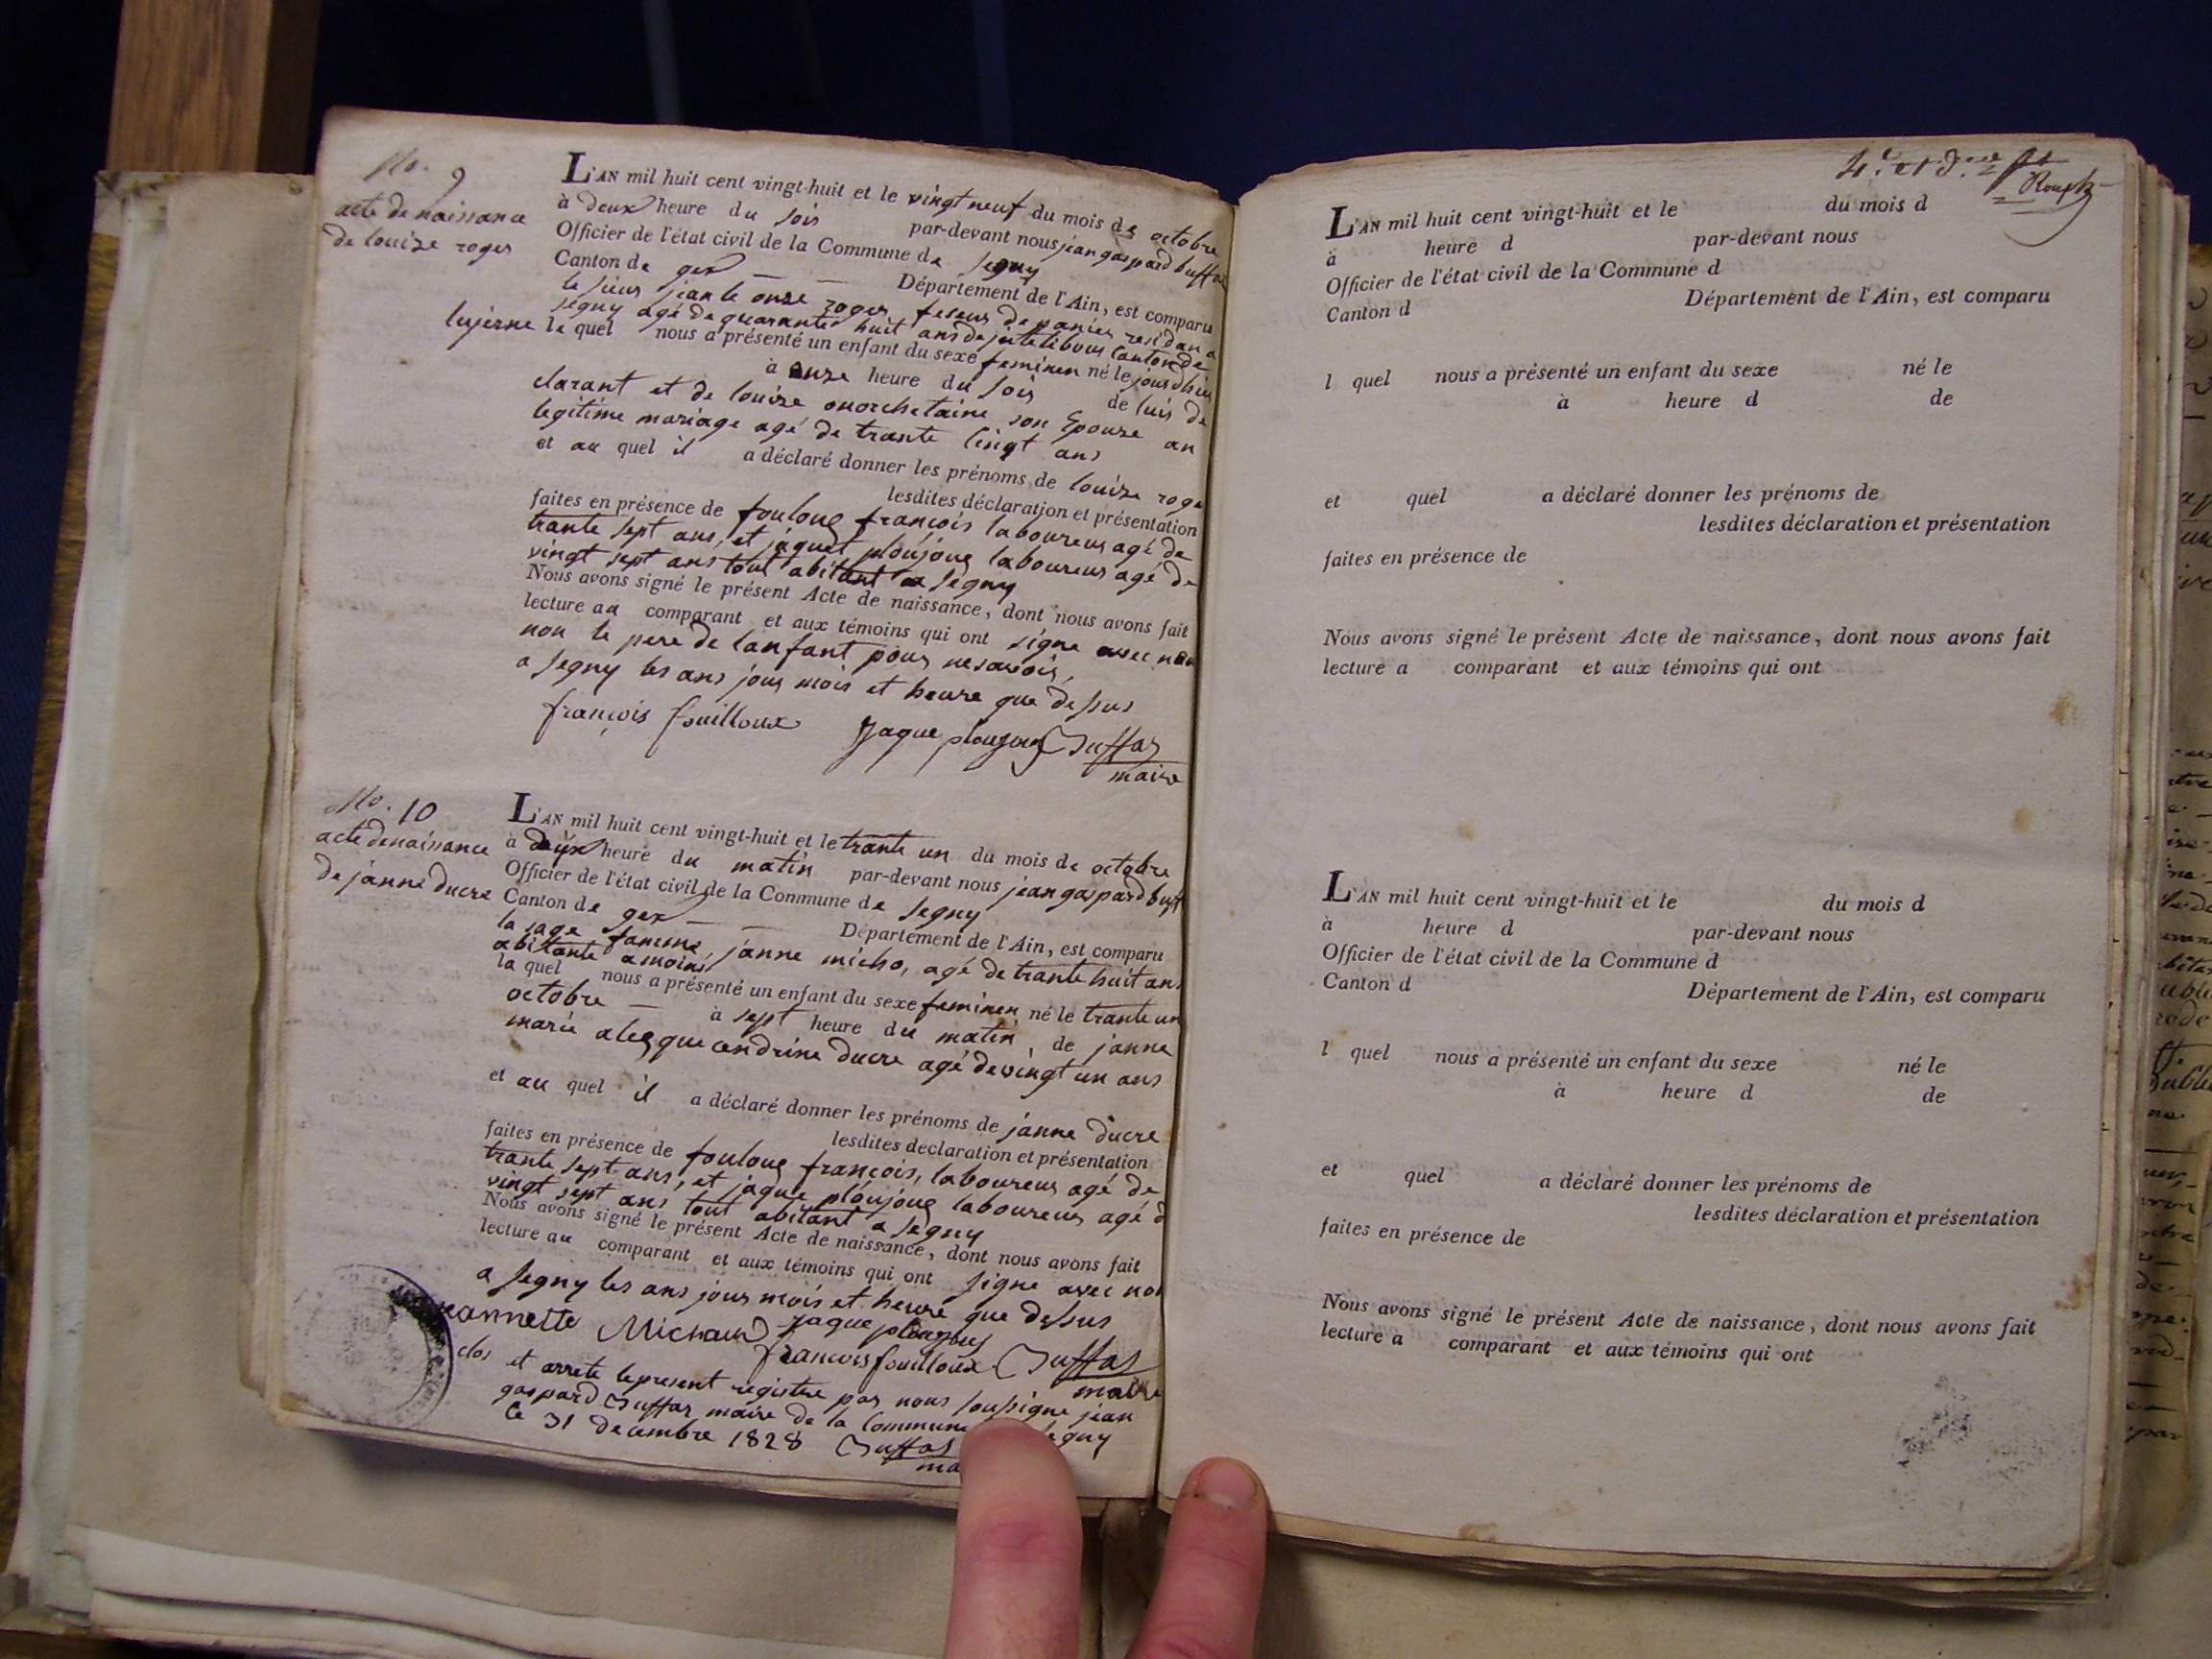 No. 9
acte de naissance
de louize roger
L'AN mil huit cent vingt-huit et le vingt neuf du mois de octobre
à deux heure du soir par-devant nous jean gaspard buffas
Officier de l'état civil de la Commune de segny
Canton de gex Département de l'Ain, est comparu
le sieur jean le onze roger feseur de panier residan a
segny agé de quarante huit ans de Canton de
lujerne le quel nous a présenté un enfant du sexe feminen né le jourdhui
à onze heure du soir de luis de
clarant et de louize son Epouze an
legitime mariage agé de trante Cingt ans
et au quel il a déclaré donner les prénoms de louize roge
lesdites déclaration et présentation
faites en présence de fouloue françois laboureur agé de
trante sept ans, et jaquet ploujoue laboureur agé de
vingt sept ans tout abitant a segny
Nous avons signé le présent Acte de naissance, dont nous avons fait
lecture au comparant et aux témoins qui ont signe avec nou
non le pere de lanfant pour ne savoir,
a segny les ans jour mois et heure que dessus
françois fouilloux Jaque ploujoux Buffas
maire
No. 10
acte de naissance
de janne ducre
L'AN mil huit cent vingt-huit et le trante un du mois de octobre
à heure du matin par-devant nous jean gaspard buff
Officier de l'état civil de la Commune de segny
Canton de gex Département de l'Ain, est comparu
la sage famme janne micho, agé de trante huit ans
abitante a moins
la quel nous a présenté un enfant du sexe feminen né le trante un
octobre à sept heure du matin de janne
marie ducre agé de vingt un ans
et au quel il a déclaré donner les prénoms de janne ducre
lesdites déclaration et présentation
faites en présence de fouloue françois, laboureur agé de
trante sept ans, et jaque ploujoue laboureur agé d
vingt sept ans tout abitant a segny
Nous avons signé le présent Acte de naissance, dont nous avons fait
lecture au comparant et aux témoins qui ont signe avec nou
a segny les ans jour mois et heure que dessus
jeannette Michaud jaque
françois fouilloux Buffas
maire
clos et arrete le present registre par nous soussigne jean
gaspard Buffas maire de la Commune segny
Ce 31 decembre 1828 Buffas
ma
4.e et d.re
L'AN mil huit cent vingt-huit et le du mois d
à heure d par-devant nous
Officier de l'état civil de la Commune d
Canton d Département de l'Ain, est comparu
l quel nous a présenté un enfant du sexe né le
à heure d de
et quel a déclaré donner les prénoms de
lesdites déclaration et présentation
faites en présence de
Nous avons signé le présent Acte de naissance, dont nous avons fait
lecture a comparant et aux témoins qui ont
L'AN mil huit cent vingt-huit et le du mois d
à heure d par-devant nous
Officier de l'état civil de la Commune d
Canton d Département de l'Ain, est comparu
l quel nous a présenté un enfant du sexe né le
à heure d de
et quel a déclaré donner les prénoms de
lesdites déclaration et présentation
faites en présence de
Nous avons signé le présent Acte de naissance, dont nous avons fait
lecture a comparant et aux témoins qui ont